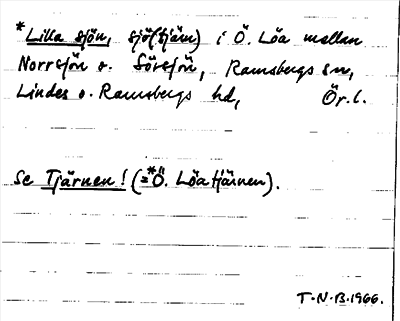 * Lilla sjön, sjö(tjärn) i Ö. Löa mellan
Norrsjön o. Sörsjön, Ramsbergs sn,
Lindes o. Ramsbergs hd, Ör. l.
Se Tjärnen! (=*Ö. Löatjärnen).
T.N.B. 1966.